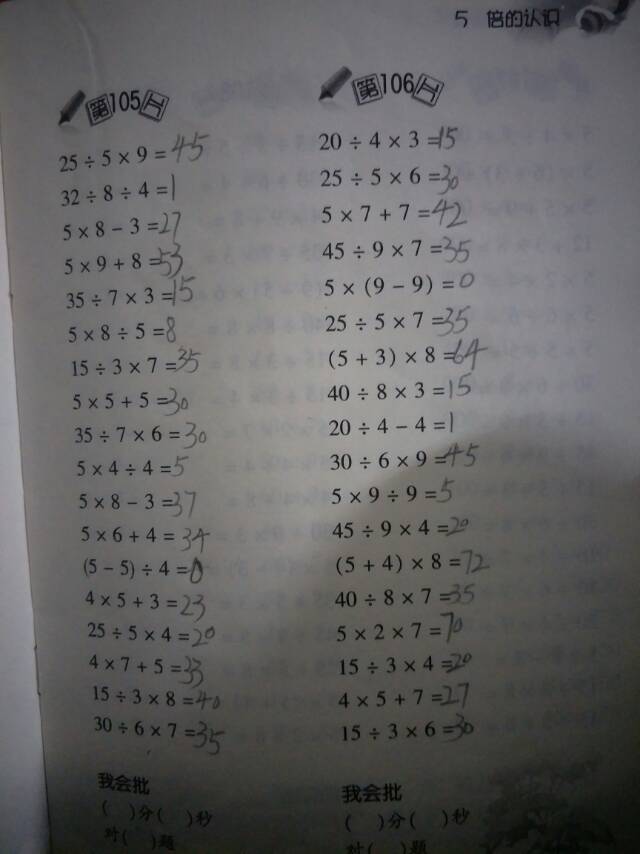 5 倍的认识
第105天
25÷5×9=45
32÷8÷4=1
5×8-3=27
5×9+8=53
35÷7×3=15
5×8÷5=8
15÷3×7=35
5×5+5=30
35÷7×6=30
5×4÷4=5
5×8-3=37
5×6+4=34
(5-5)÷4=0
4×5+3=23
25÷5×4=20
4×7+5=33
15÷3×8=40
30÷6×7=35
我会批
( )分( )秒
对( )题
第106天
20÷4×3=15
25÷5×6=30
5×7+7=42
45÷9×7=35
5×(9-9)=0
25÷5×7=35
(5+3)×8=64
40÷8×3=15
20÷4-4=1
30÷6×9=45
5×9÷9=5
45÷9×4=20
(5+4)×8=72
40÷8×7=35
5×2×7=70
15÷3×4=20
4×5+7=27
15÷3×6=30
我会批
( )分( )秒
对( )题